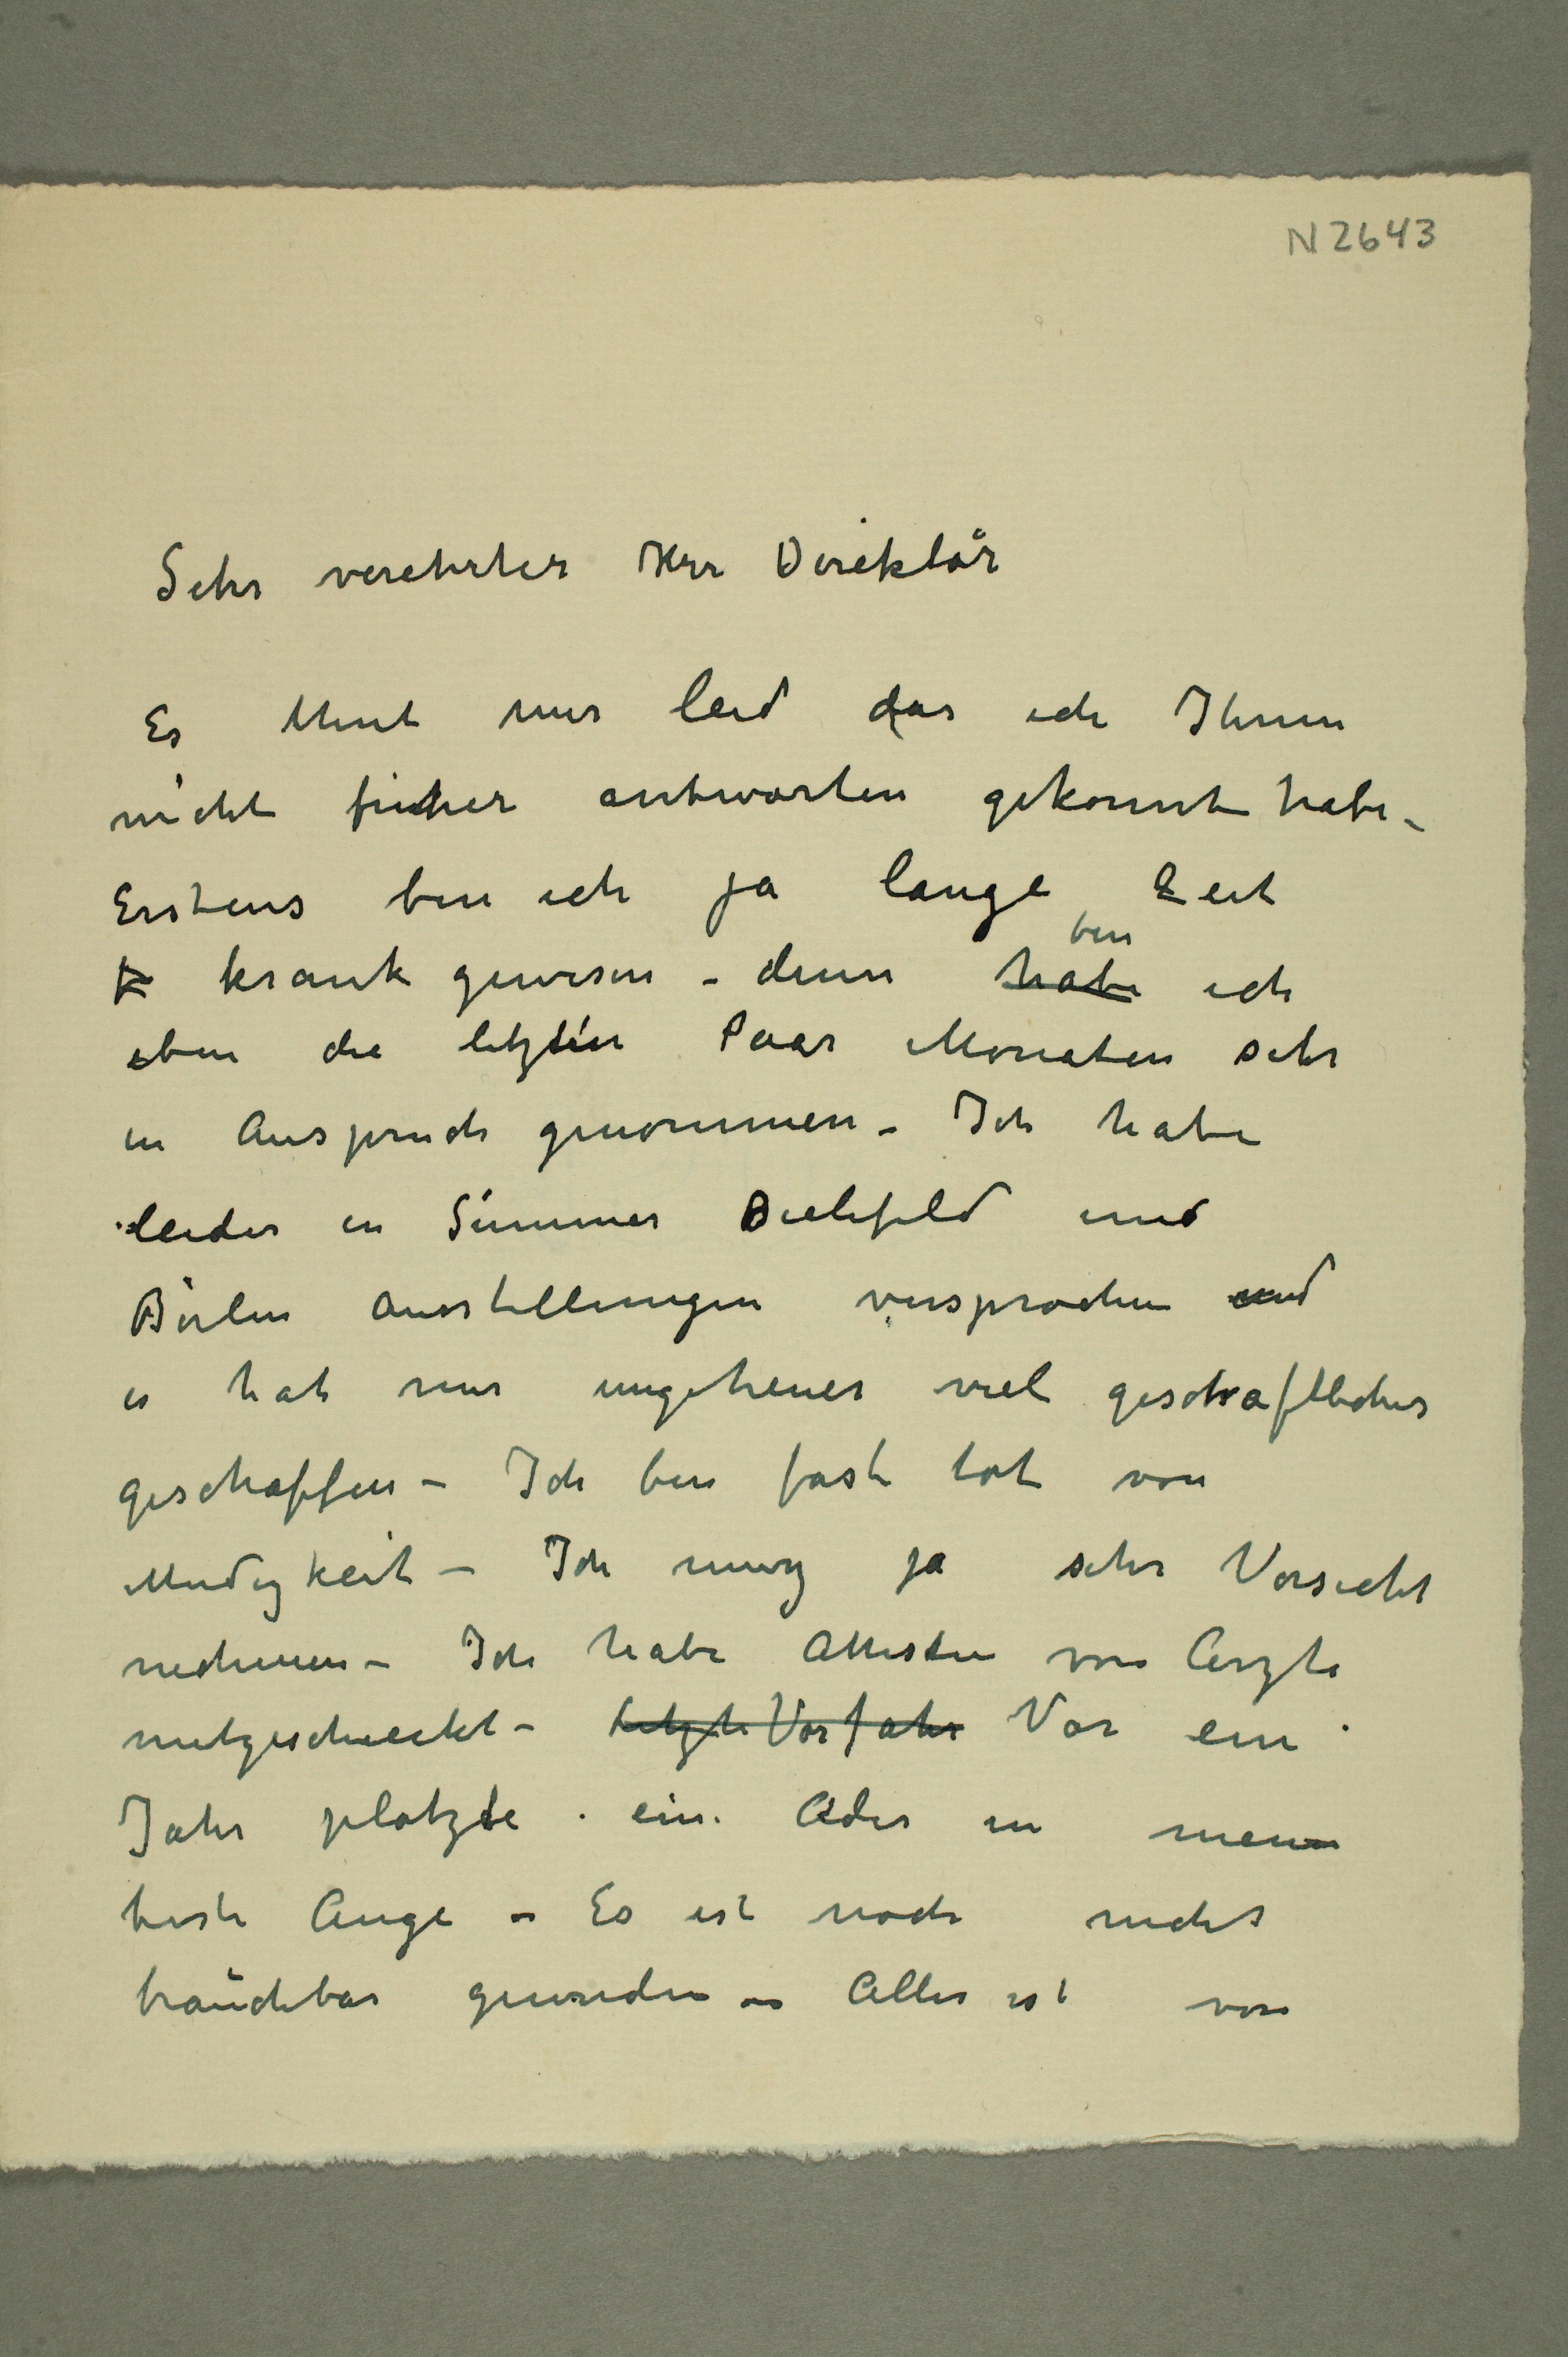 N 2643
Sehr verehrter Herr Direktör
Es thut mir leid das ich Ihnen
nicht früher antworten gekonnt habe –
Erstens bin ich ja lange Zeit
k krank gewesen – denn habe bin ich
eben die letzten Paar Monaten sehr
in Anspruch genommen – Ich habe
leider in Sümmer Bielefeld und
Berlin Ausstellungen versprochen und
es hat mir ungeheuer viel geschaftliches
geschaffen – Ich bin fast tot von
Mudigkeit – Ich muss ja sehr Vorsicht
nehmen – Ich habe Attesten von Arzte
mitgeschickt – Letzte Vorjahr Vor ein
Jahr platzte ein Ader in mein
beste Auge – Es ist noch nicht
brauchbar geworden – Alles ist von